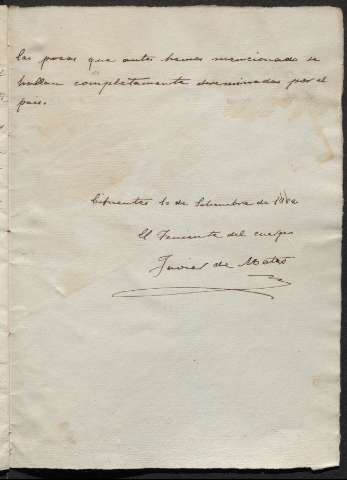 las pocas que antes hemos mencionado se
hallan completamente diseminadas por el
pais.
Cifuentes 10 de Setiembre de
El Teniente del cuerpo
Javier de Mateo